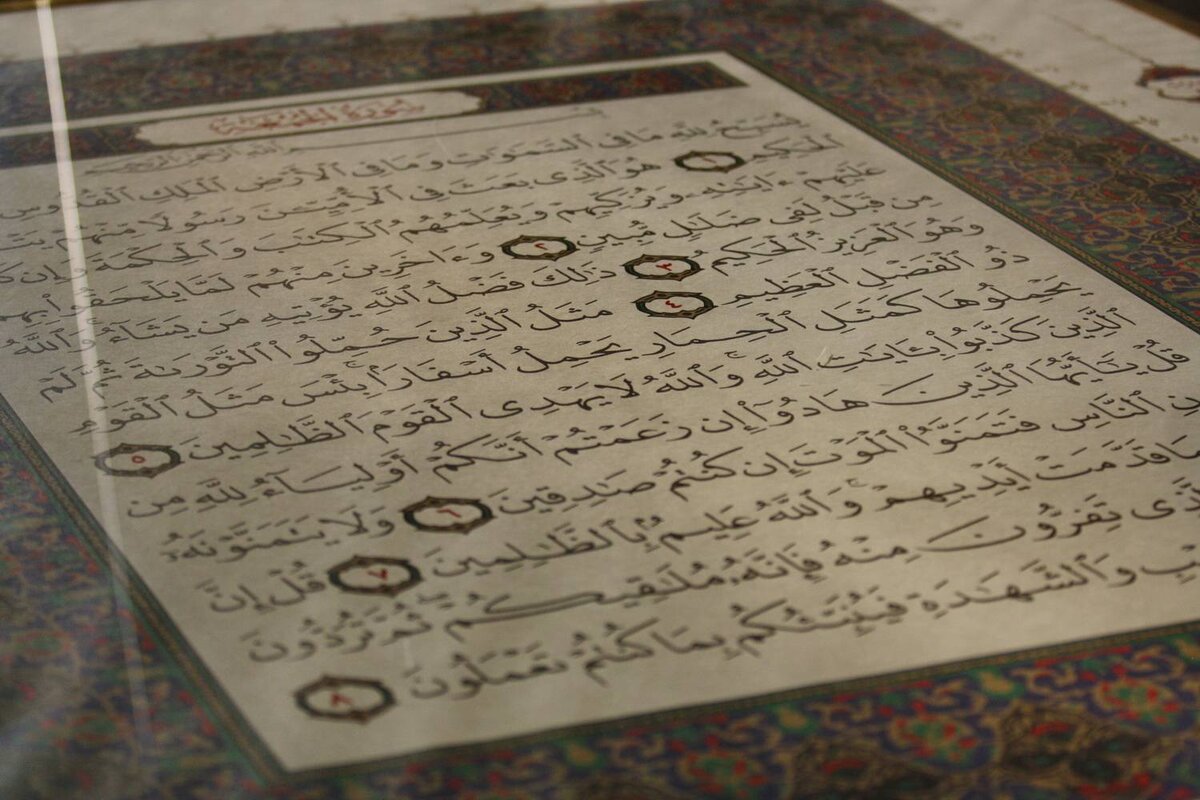 سُورَةُ الجُمُعَةِ
بِسْمِ ٱللَّهِ ٱلرَّحْمَٰنِ ٱلرَّحِيمِ
يُسَبِّحُ لِلَّهِ مَا فِى ٱلسَّمَٰوَٰتِ وَمَا فِى ٱلْأَرْضِ ٱلْمَلِكِ ٱلْقُدُّوسِ
ٱلْحَكِيمِ ١ هُوَ ٱلَّذِى بَعَثَ فِى ٱلْأُمِّيِّۦنَ رَسُولًا مِّنْهُمْ
عَلَيْهِمْ ءَايَٰتِهِۦ وَيُزَكِّيهِمْ وَيُعَلِّمُهُمُ ٱلْكِتَٰبَ وَٱلْحِكْمَةَ وَإِن
مِن قَبْلُ لَفِى ضَلَٰلٍ مُّبِينٍ ٢ وَءَاخَرِينَ مِنْهُمْ لَمَّا يَلْحَقُوا۟ بِهِمْ
وَهُوَ ٱلْعَزِيزُ ٱلْحَكِيمُ ٣ ذَٰلِكَ فَضْلُ ٱللَّهِ يُؤْتِيهِ مَن يَشَآءُ وَٱللَّهُ
ذُو ٱلْفَضْلِ ٱلْعَظِيمِ ٤ مَثَلُ ٱلَّذِينَ حُمِّلُوا۟ ٱلتَّوْرَىٰةَ ثُمَّ لَمْ
يَحْمِلُوهَا كَمَثَلِ ٱلْحِمَارِ يَحْمِلُ أَسْفَارًۢا بِئْسَ مَثَلُ ٱلْقَوْمِ
ٱلَّذِينَ كَذَّبُوا۟ بِـَٔايَٰتِ ٱللَّهِ وَٱللَّهُ لَا يَهْدِى ٱلْقَوْمَ ٱلظَّٰلِمِينَ ٥
قُلْ يَٰٓأَيُّهَا ٱلَّذِينَ هَادُوٓا۟ إِن زَعَمْتُمْ أَنَّكُمْ أَوْلِيَآءُ لِلَّهِ مِن
ٱلنَّاسِ فَتَمَنَّوُا۟ ٱلْمَوْتَ إِن كُنتُمْ صَٰدِقِينَ ٦ وَلَا يَتَمَنَّوْنَهُۥٓ
مَا قَدَّمَتْ أَيْدِيهِمْ وَٱللَّهُ عَلِيمٌۢ بِٱلظَّٰلِمِينَ ٧ قُلْ إِنَّ
تَفِرُّونَ مِنْهُ فَإِنَّهُۥ مُلَٰقِيكُمْ ثُمَّ تُرَدُّونَ
وَٱلشَّهَٰدَةِ فَيُنَبِّئُكُم بِمَا كُنتُمْ تَعْمَلُونَ ٨